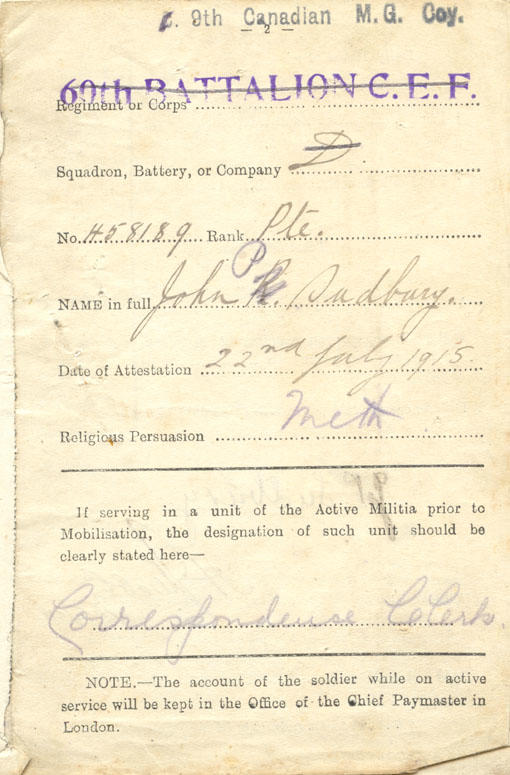 9th Canadian M. G. Coy.
— 2 —
60th BATTALION C.E.F.
Regiment or Corps
Squadron, Battery, or Company D
No. 458189 Rank Pte.
NAME in full John P. Sudbury.
Date of Attestation 22nd July 1915.
Religious Persuasion Meth
If serving in a unit of the Active Militia prior to
Mobilisation, the designation of such unit should be
clearly stated here—
Correspondense Clerk.
NOTE.—The account of the soldier while on active
service will be kept in the Office of the Chief Paymaster in
London.